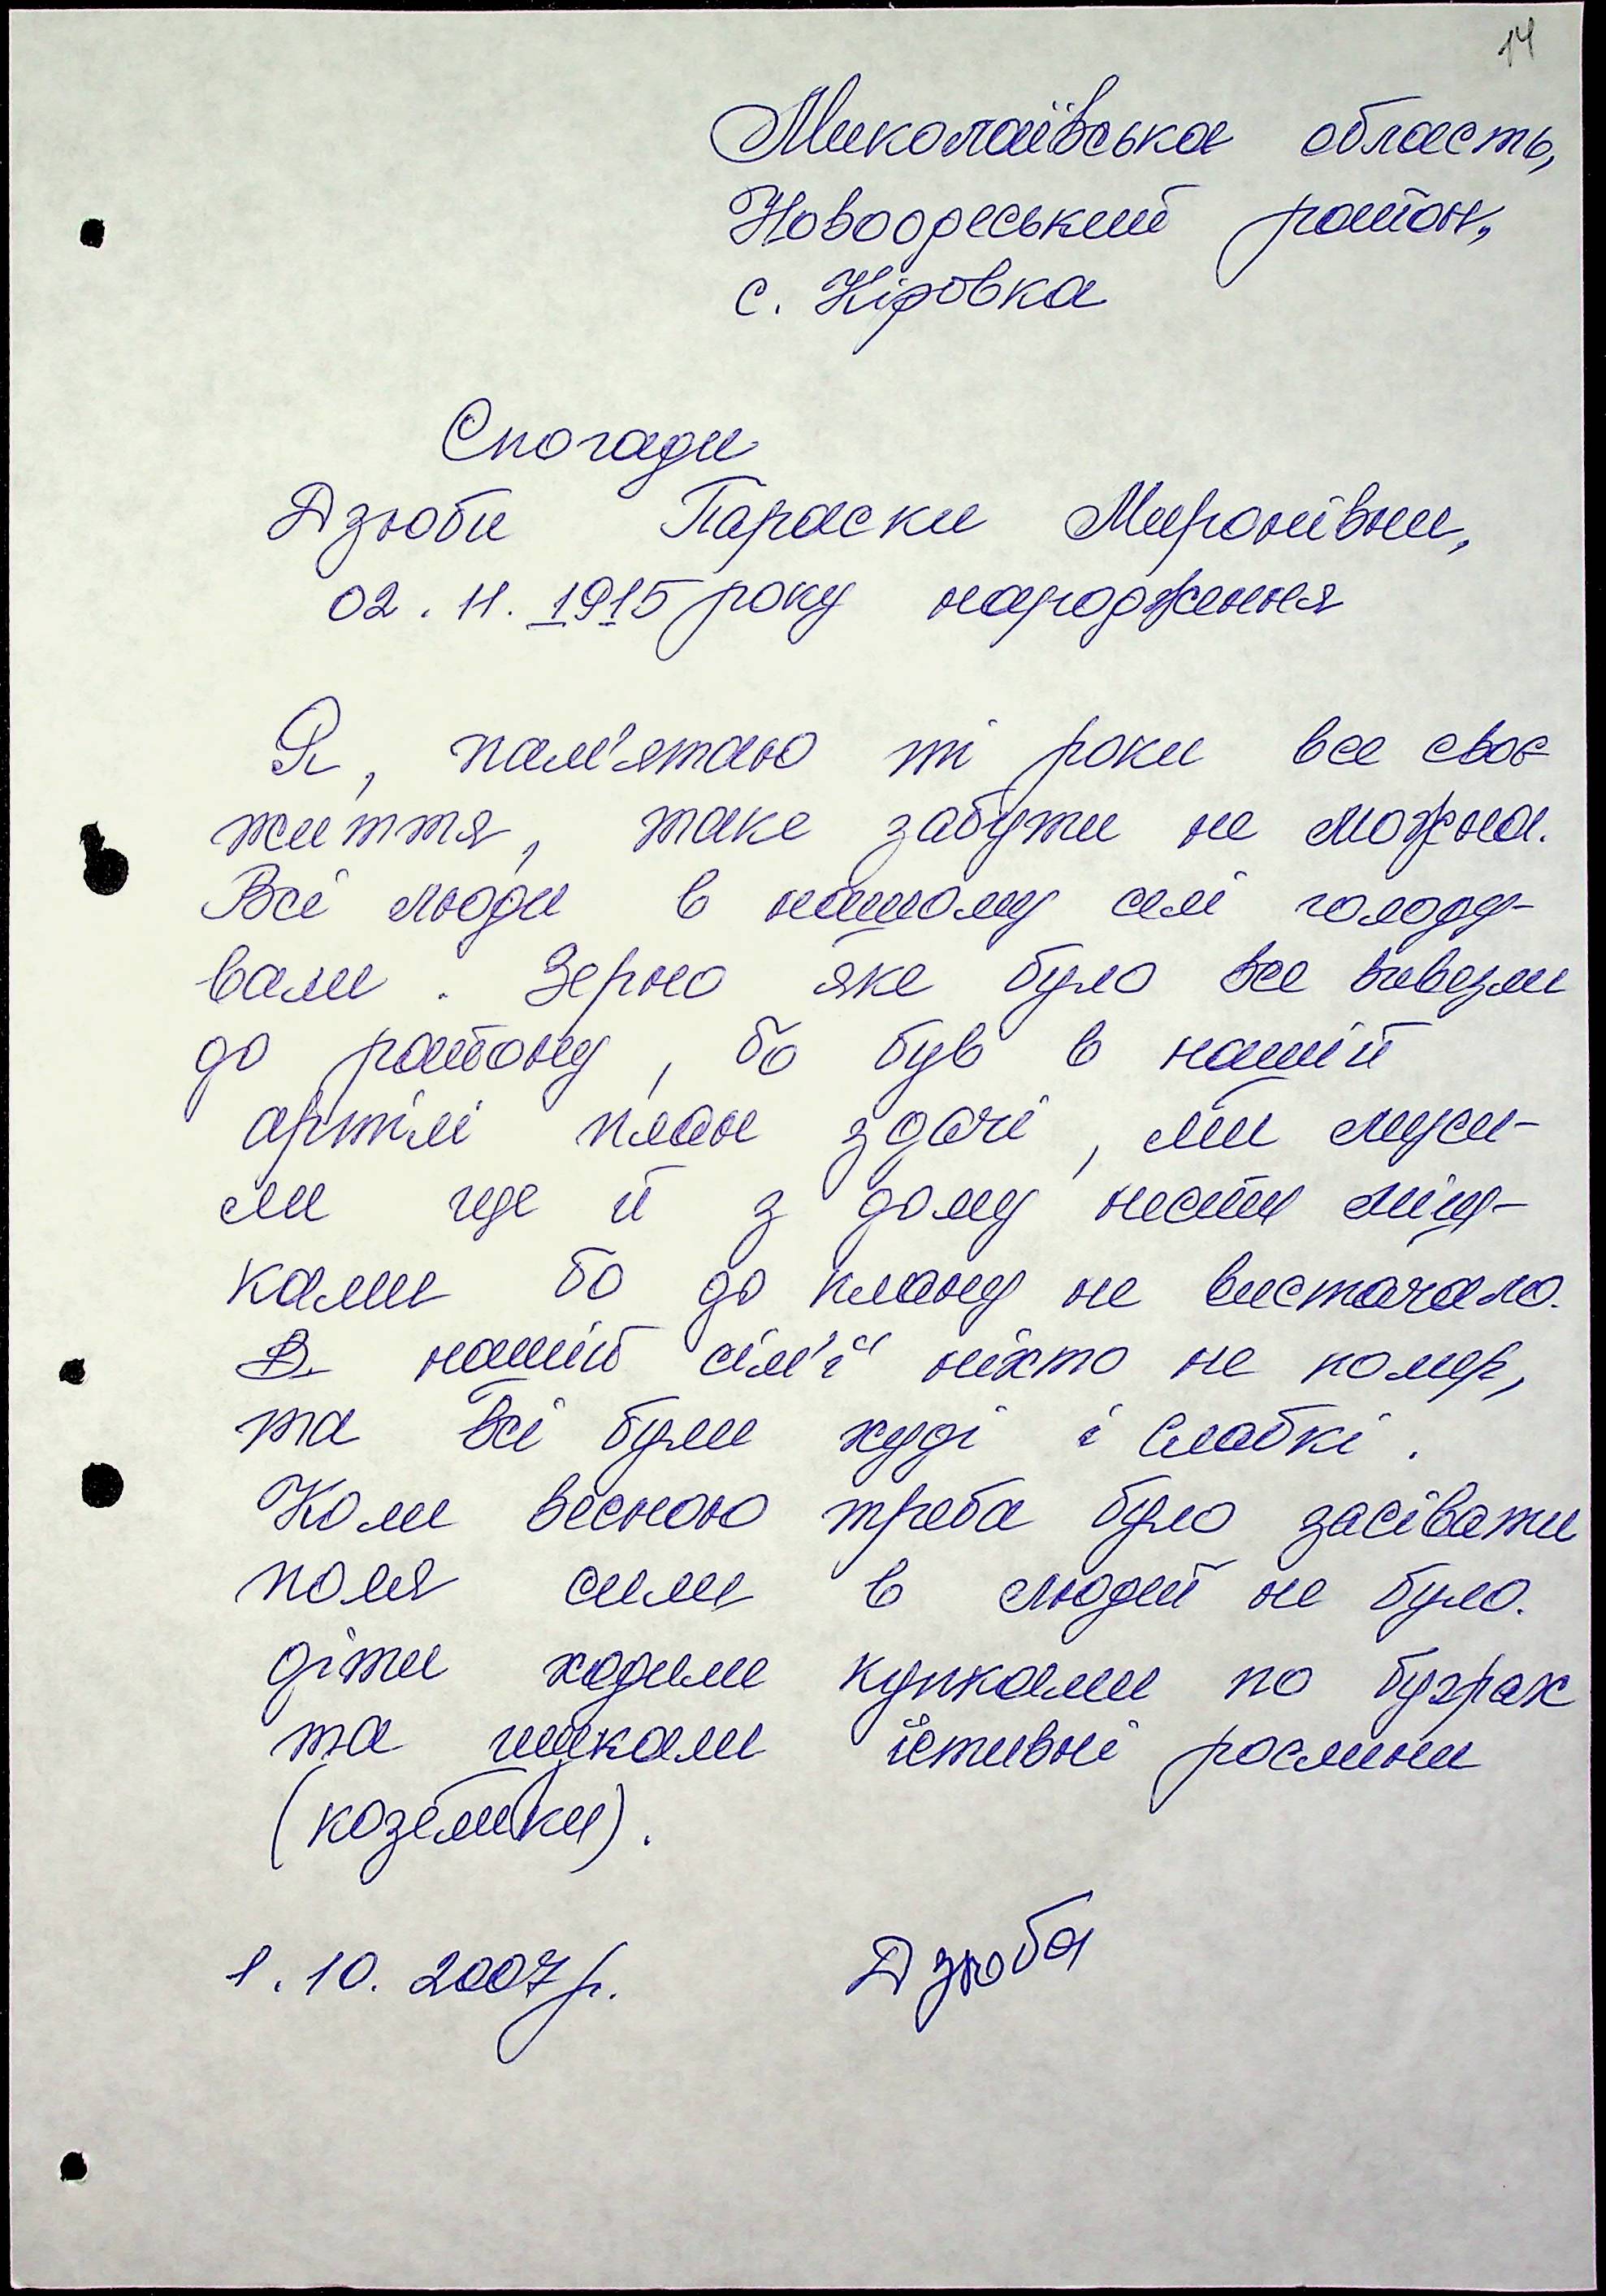 14
Миколаївська область,
Новоодеський район,
с. Кіровка
Спогади
Дзюби Параски Миронівни,
02. 11. 1915 року народження
Я, пам'ятаю ті роки все своє
життя, таке забути не можна.
Всі люди в нашому селі голоду-
вали. Зерно яке було все вивезли
до району, бо був в нашій
артілі план здачі, ми муси-
ли ще й з дому нести міш-
ками бо до плану не вистачало.
В нашій сім'ї ніхто не помер,
та всі були худі і слабкі.
Коли весною треба було засівати
поля сили в людей не було.
діти ходили купками по буграх
та шукали їстивні рослини
(козелики).
1. 10. 2007 р. Дзюба